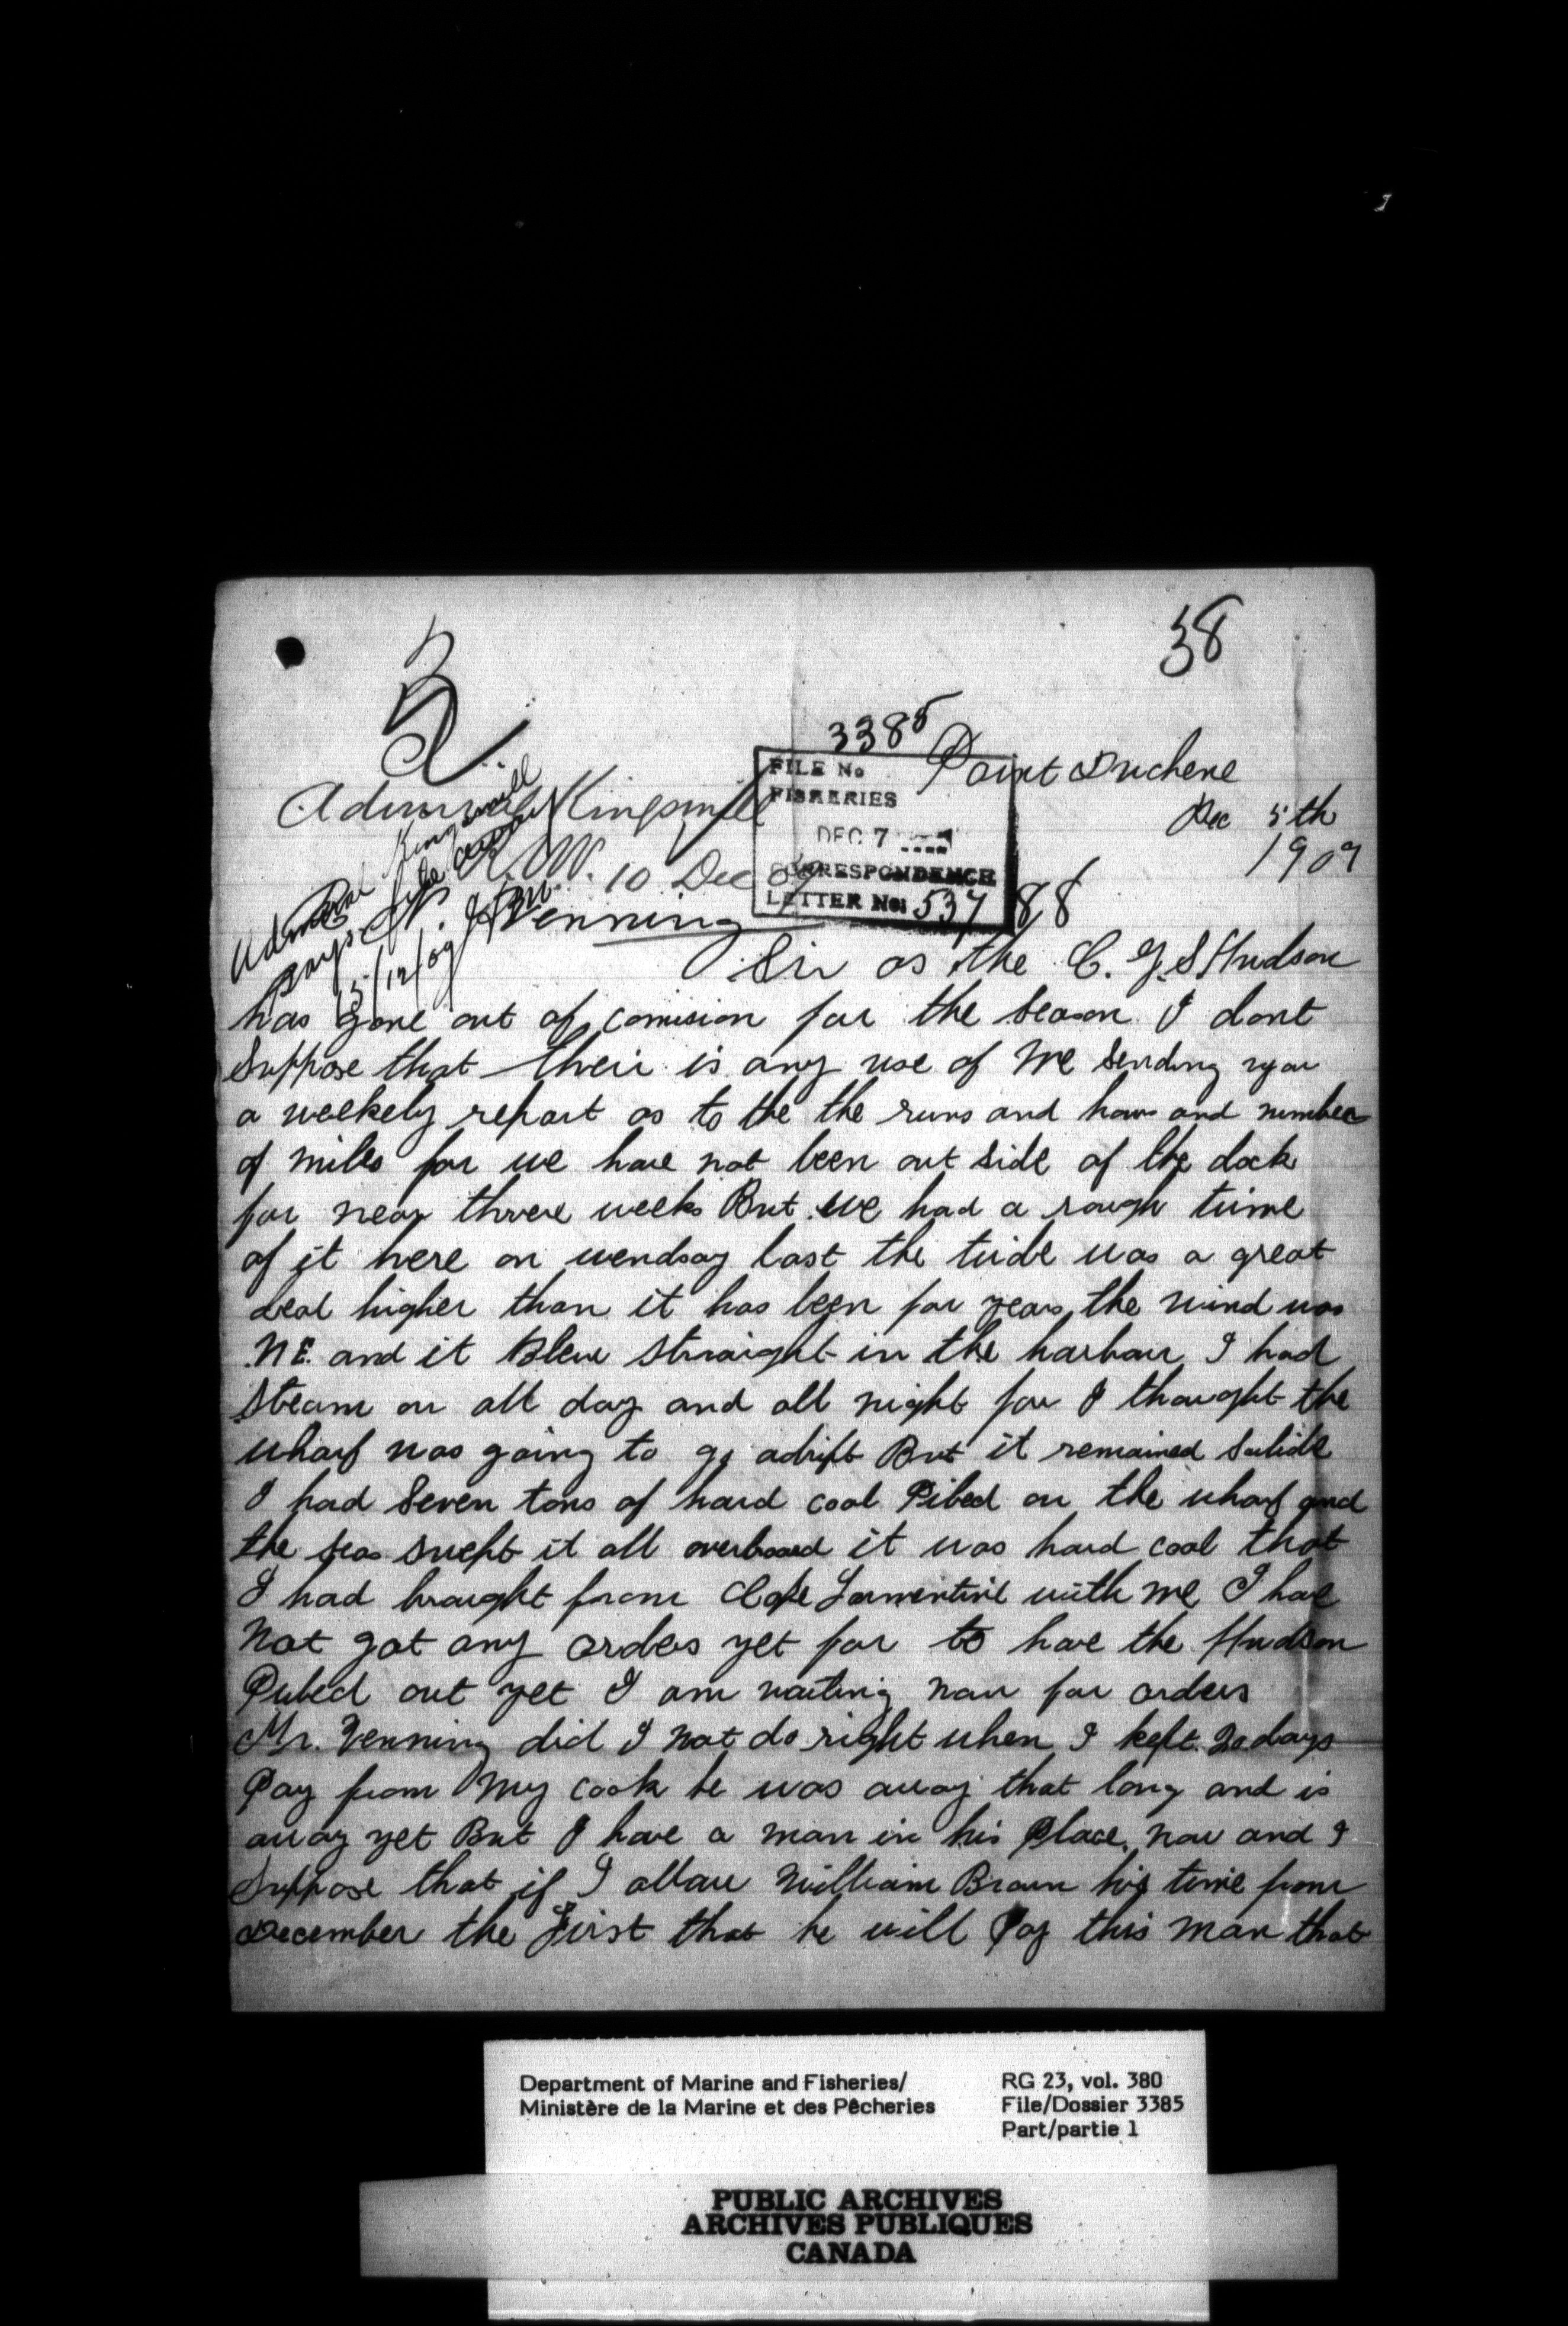 38
3385
Point Duchene
FILE No
FISHERIES
DEC 7
CORRESPONDENCE
LETTER No: 537 88
Dec 5th
1909
Admiral Kingsmill
R.N.V. 10 Dec 09
Admiral Kingsmill
says
15/12/09
Venning
Sir as the C. G. S Hudson
has gone out of comision for the season I dont
Suppose that their is any use of Me sending you
a weekely report as to the the runs and hours and number
of miles for we have not been out side of the dock
for near threre weeks But we had a rough time
of it here on wendsay last the tide was a great
deal higher than it has been for years, the wind was
N E. and it Blew straight in the harbour I had
steam on all day and all night for I thought the
wharf was going to go adrift But it remained Solide
I had Seven tons of hard coal Piled on the wharf and
the seas swept it all overboard it was hard coal that
I had braught from Cape Tormentine with me I have
Not got any orders yet for to have the Hudson
Puled out yet I am waiting now for orders
Mr. Venning did I not do right when I kept 20 days
Pay from My cook he was away that long and is
away yet But I have a man in his Place, now and I
Suppose that if I allow William Brown his time from
December the First that he will Pay this man that
Department of Marine and Fisheries/
Ministère de la Marine et des Pêcheries
RG 23, vol. 380
File/Dossier 3385
Part/partie 1
PUBLIC ARCHIVES
ARCHIVES PUBLIQUES
CANADA